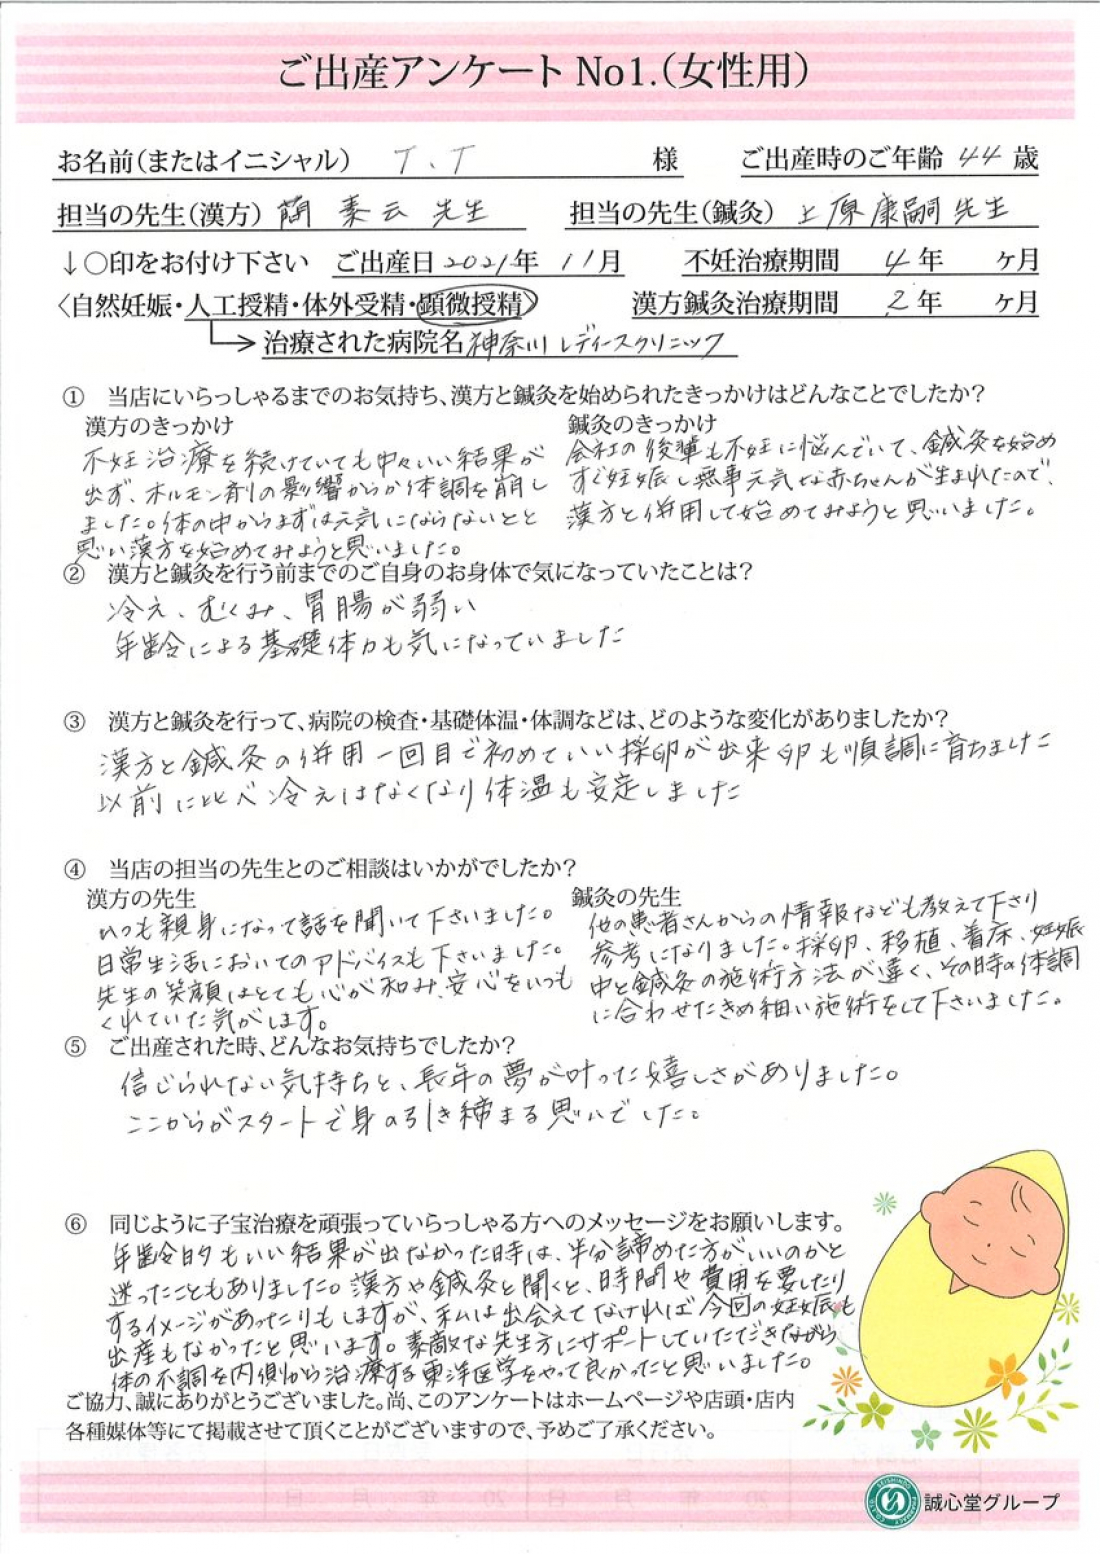 ご出産アンケート No1.（女性用）
お名前（またはイニシャル） T.T 様 ご出産時のご年齢 44 歳
担当の先生（漢方） 藺 素云 先生 担当の先生（鍼灸） 上原康嗣先生
↓○印をお付け下さい ご出産日 2021年 11月 不妊治療期間 4 年 ヶ月
〈自然妊娠・人工授精・体外受精・顕微授精〉 漢方鍼灸治療期間 2 年 ヶ月
治療された病院名 神奈川レディースクリニック
① 当店にいらっしゃるまでのお気持ち、漢方と鍼灸を始められたきっかけはどんなことでしたか？
漢方のきっかけ
不妊治療を続けていても中々いい結果が
出ず、ホルモン剤の影響からか体調を崩し
ました。体の中からまずは元気にならないとと
思い漢方を始めてみようと思いました。
鍼灸のきっかけ
会社の後輩も不妊に悩んでいて、鍼灸を始め
すぐ妊娠し無事元気な赤ちゃんが生まれたので、
漢方と併用して始めてみようと思いました。
② 漢方と鍼灸を行う前までのご自身のお身体で気になっていたことは？
冷え、むくみ、胃腸が弱い
年齢による基礎体力も気になっていました
③ 漢方と鍼灸を行って、病院の検査・基礎体温・体調などは、どのような変化がありましたか？
漢方と鍼灸の併用一回目で初めていい採卵が出来卵も順調に育ちました
以前に比べ冷えはなくなり体温も安定しました
④ 当店の担当の先生とのご相談はいかがでしたか？
漢方の先生
いつも親身になって話を聞いて下さいました。
日常生活においてのアドバイスも下さいました。
先生の笑顔はとても心が和み、安心をいつも
くれていた気がします。
鍼灸の先生
他の患者さんからの情報なども教えて下さり
参考になりました。採卵、移植、着床、妊娠
中と鍼灸の施術方法が違く、その時の体調
に合わせたきめ細い施術をして下さいました。
⑤ ご出産された時、どんなお気持ちでしたか？
信じられない気持ちと、長年の夢が叶った嬉しさがありました。
ここからがスタートで身の引き締まる思いでした。
⑥ 同じように子宝治療を頑張っていらっしゃる方へのメッセージをお願いします。
年齢的もいい結果が出なかった時は、半分諦めた方がいいのかと
迷ったこともありました。漢方や鍼灸と聞くと、時間や費用を要したり
するイメージがあったりもしますが、私は出会えてなければ今回の妊娠も
出産もなかったと思います。素敵な先生方にサポートしていただきながら
体の不調を内側から治療する東洋医学をやって良かったと思いました。
ご協力、誠にありがとうございました。尚、このアンケートはホームページや店頭・店内
各種媒体等にて掲載させて頂くことがございますので、予めご了承ください。
誠心堂グループ